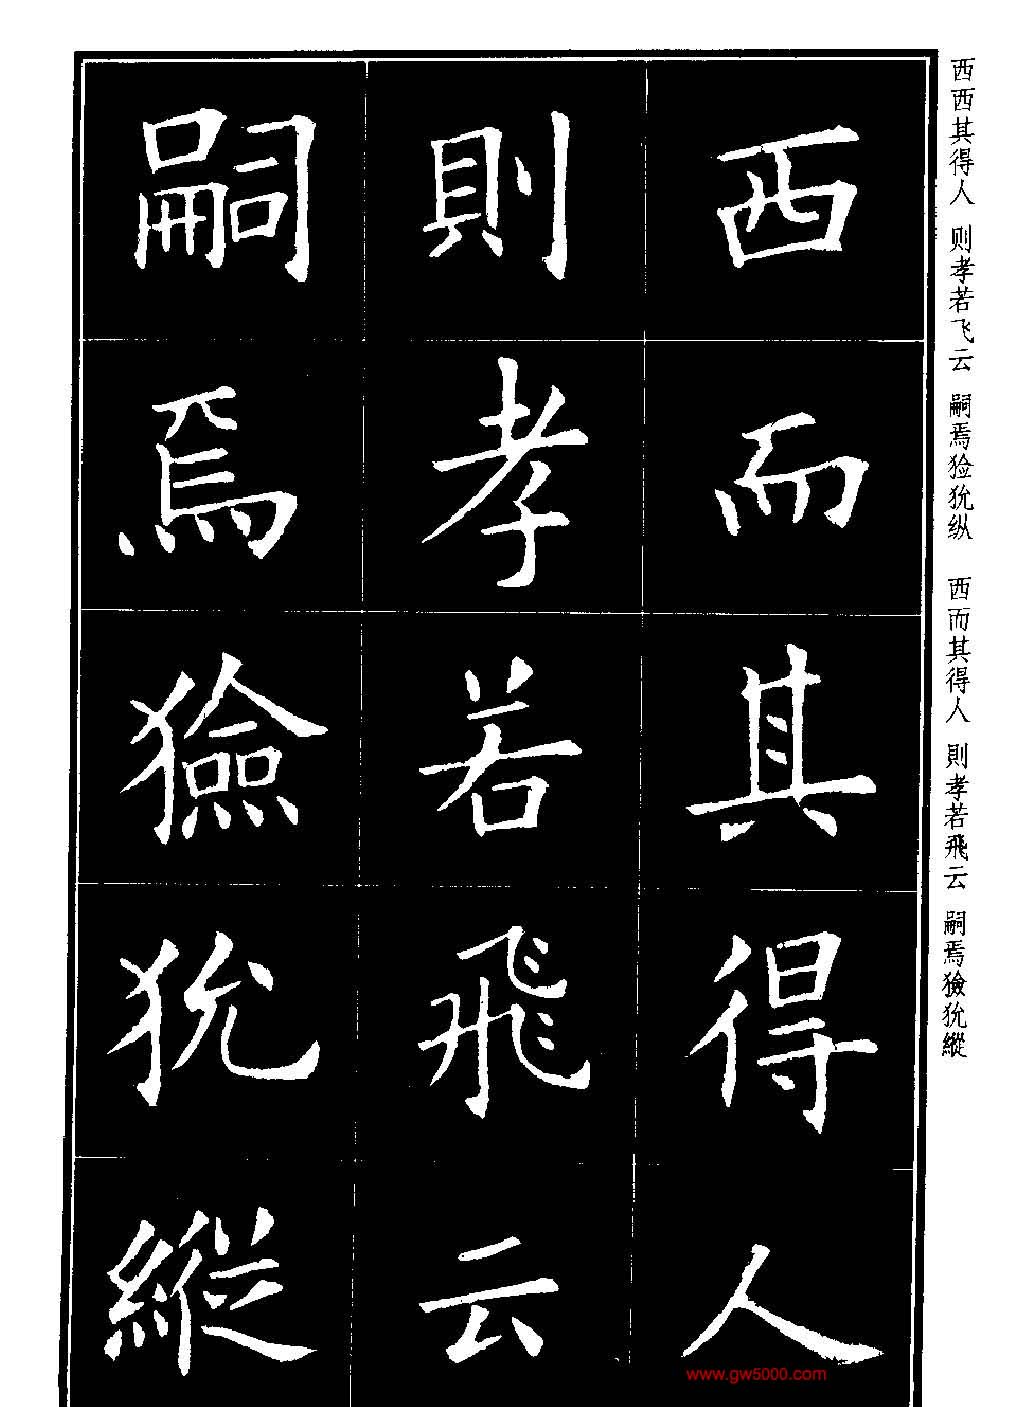 西西其得人 则孝若飞云 嗣焉猃狁纵 西而其得人 則孝若飛云 嗣焉獫狁縱
西而其得人
則孝若飛云
嗣焉獫狁縱
www.gw5000.com